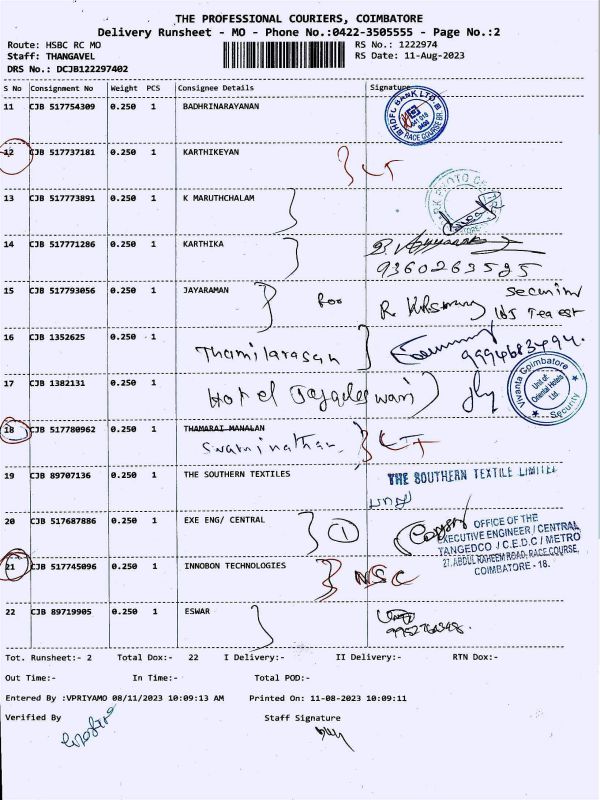 THE PROFESSIONAL COURIERS, COIMBATORE
Delivery Runsheet - MO - Phone No.:0422-3505555 - Page No.:2
Route: HSBC RC MO RS No.: 1222974
Staff: THANGAVEL RS Date: 11-Aug-2023
DRS No.: DCJB122297402
S No Consignment No Weight PCS Consignee Details Signature
11 CJB 517754309 0.250 1 BADHRINARAYANAN
HDFC BANK LTD RACE COURSE BR
12 CJB 517737181 0.250 1 KARTHIKEYAN
13 CJB 517773891 0.250 1 K MARUTHCHALAM
14 CJB 517771286 0.250 1 KARTHIKA
9360263525
15 CJB 517793056 0.250 1 JAYARAMAN for R
16 CJB 1352625 0.250 1 Thamilarasan
9994683494.
17 CJB 1382131 0.250 1 Hotel
Vivanta Coimbatore Unit of: Oriental Hotels Ltd. Security
18 CJB 517780962 0.250 1 THAMARAI MANALAN
Swaminathan
19 CJB 89707136 0.250 1 THE SOUTHERN TEXTILES THE SOUTHERN TEXTILE LIMITED
20 CJB 517687886 0.250 1 EXE ENG/ CENTRAL 1
OFFICE OF THE
EXECUTIVE ENGINEER / CENTRAL
TANGEDCO / C.E.D.C / METRO
27, ABDUL RAHEEM ROAD, RACE COURSE,
COIMBATORE - 18.
21 CJB 517745096 0.250 1 INNOBON TECHNOLOGIES NSC
22 CJB 89719905 0.250 1 ESWAR
Tot. Runsheet:- 2 Total Dox:- 22 I Delivery:- II Delivery:- RTN Dox:-
Out Time:- In Time:- Total POD:-
Entered By :VPRIYAMO 08/11/2023 10:09:13 AM Printed On: 11-08-2023 10:09:11
Verified By Staff Signature